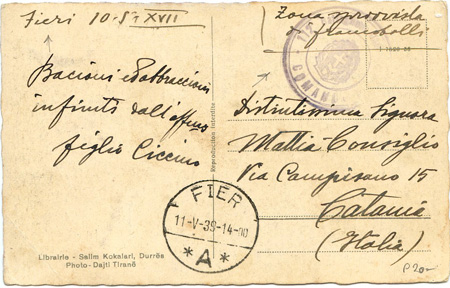 Fieri 10-5-XVII
Zona sprovvista
di francobolli
Bacioni ed abbraccioni
infiniti dall'affmo
figlio Ciccino
Distintissima Signora
Mattia Consiglio
Via Campisano 15
Catania
(Italia)
COMAN
FIER
11-V-39-14-00
*A*
Reproduction interdite
Librairie - Salim Kokalari, Durrës
Photo-Dajti Tiranë
P20-